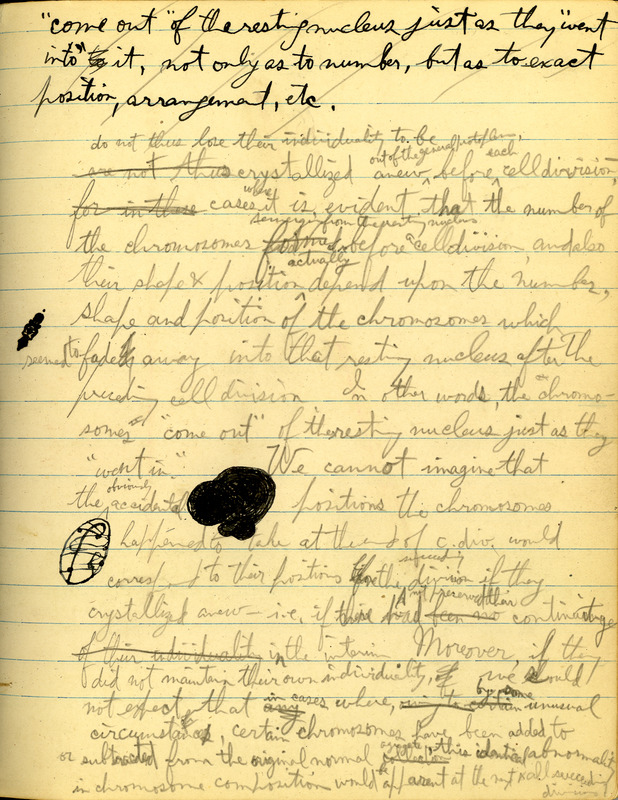 "come out" of the resting nucleus just as they "went
into" it, not only as to number, but as to exact
position, arrangement, etc.
do not thus lose their individuality, to be
out of the general protoplasm, each
are not thus crystallized anew before cell division,
for in those cases where it is evident that the number of
emerging from the resting nucleus
the chromosomes before cell division, and also
actually
their shape & position depend upon the number,
shape and position of the chromosomes which
seemed to fade away into that resting nucleus after the
preceding cell division In other words, the chromo-
somes "come out" of the resting nucleus just as they
"went in." We cannot imagine that
obviously
the accidental positions the chromosomes
happened to take at the end of c. div. would
succeeding
corresp. to their positions before the division if they
crystallized anew – i.e., if they had not preserved their continuity
of their individuality in the interim Moreover, if they
did not maintain their own individuality, we should
not expect that in cases where, by some unusual
circumstance, certain chromosomes have been added to
or subtracted from the original normal this identical abnormality
in chromosome composition would be apparent at the next & all succeeding
divisions